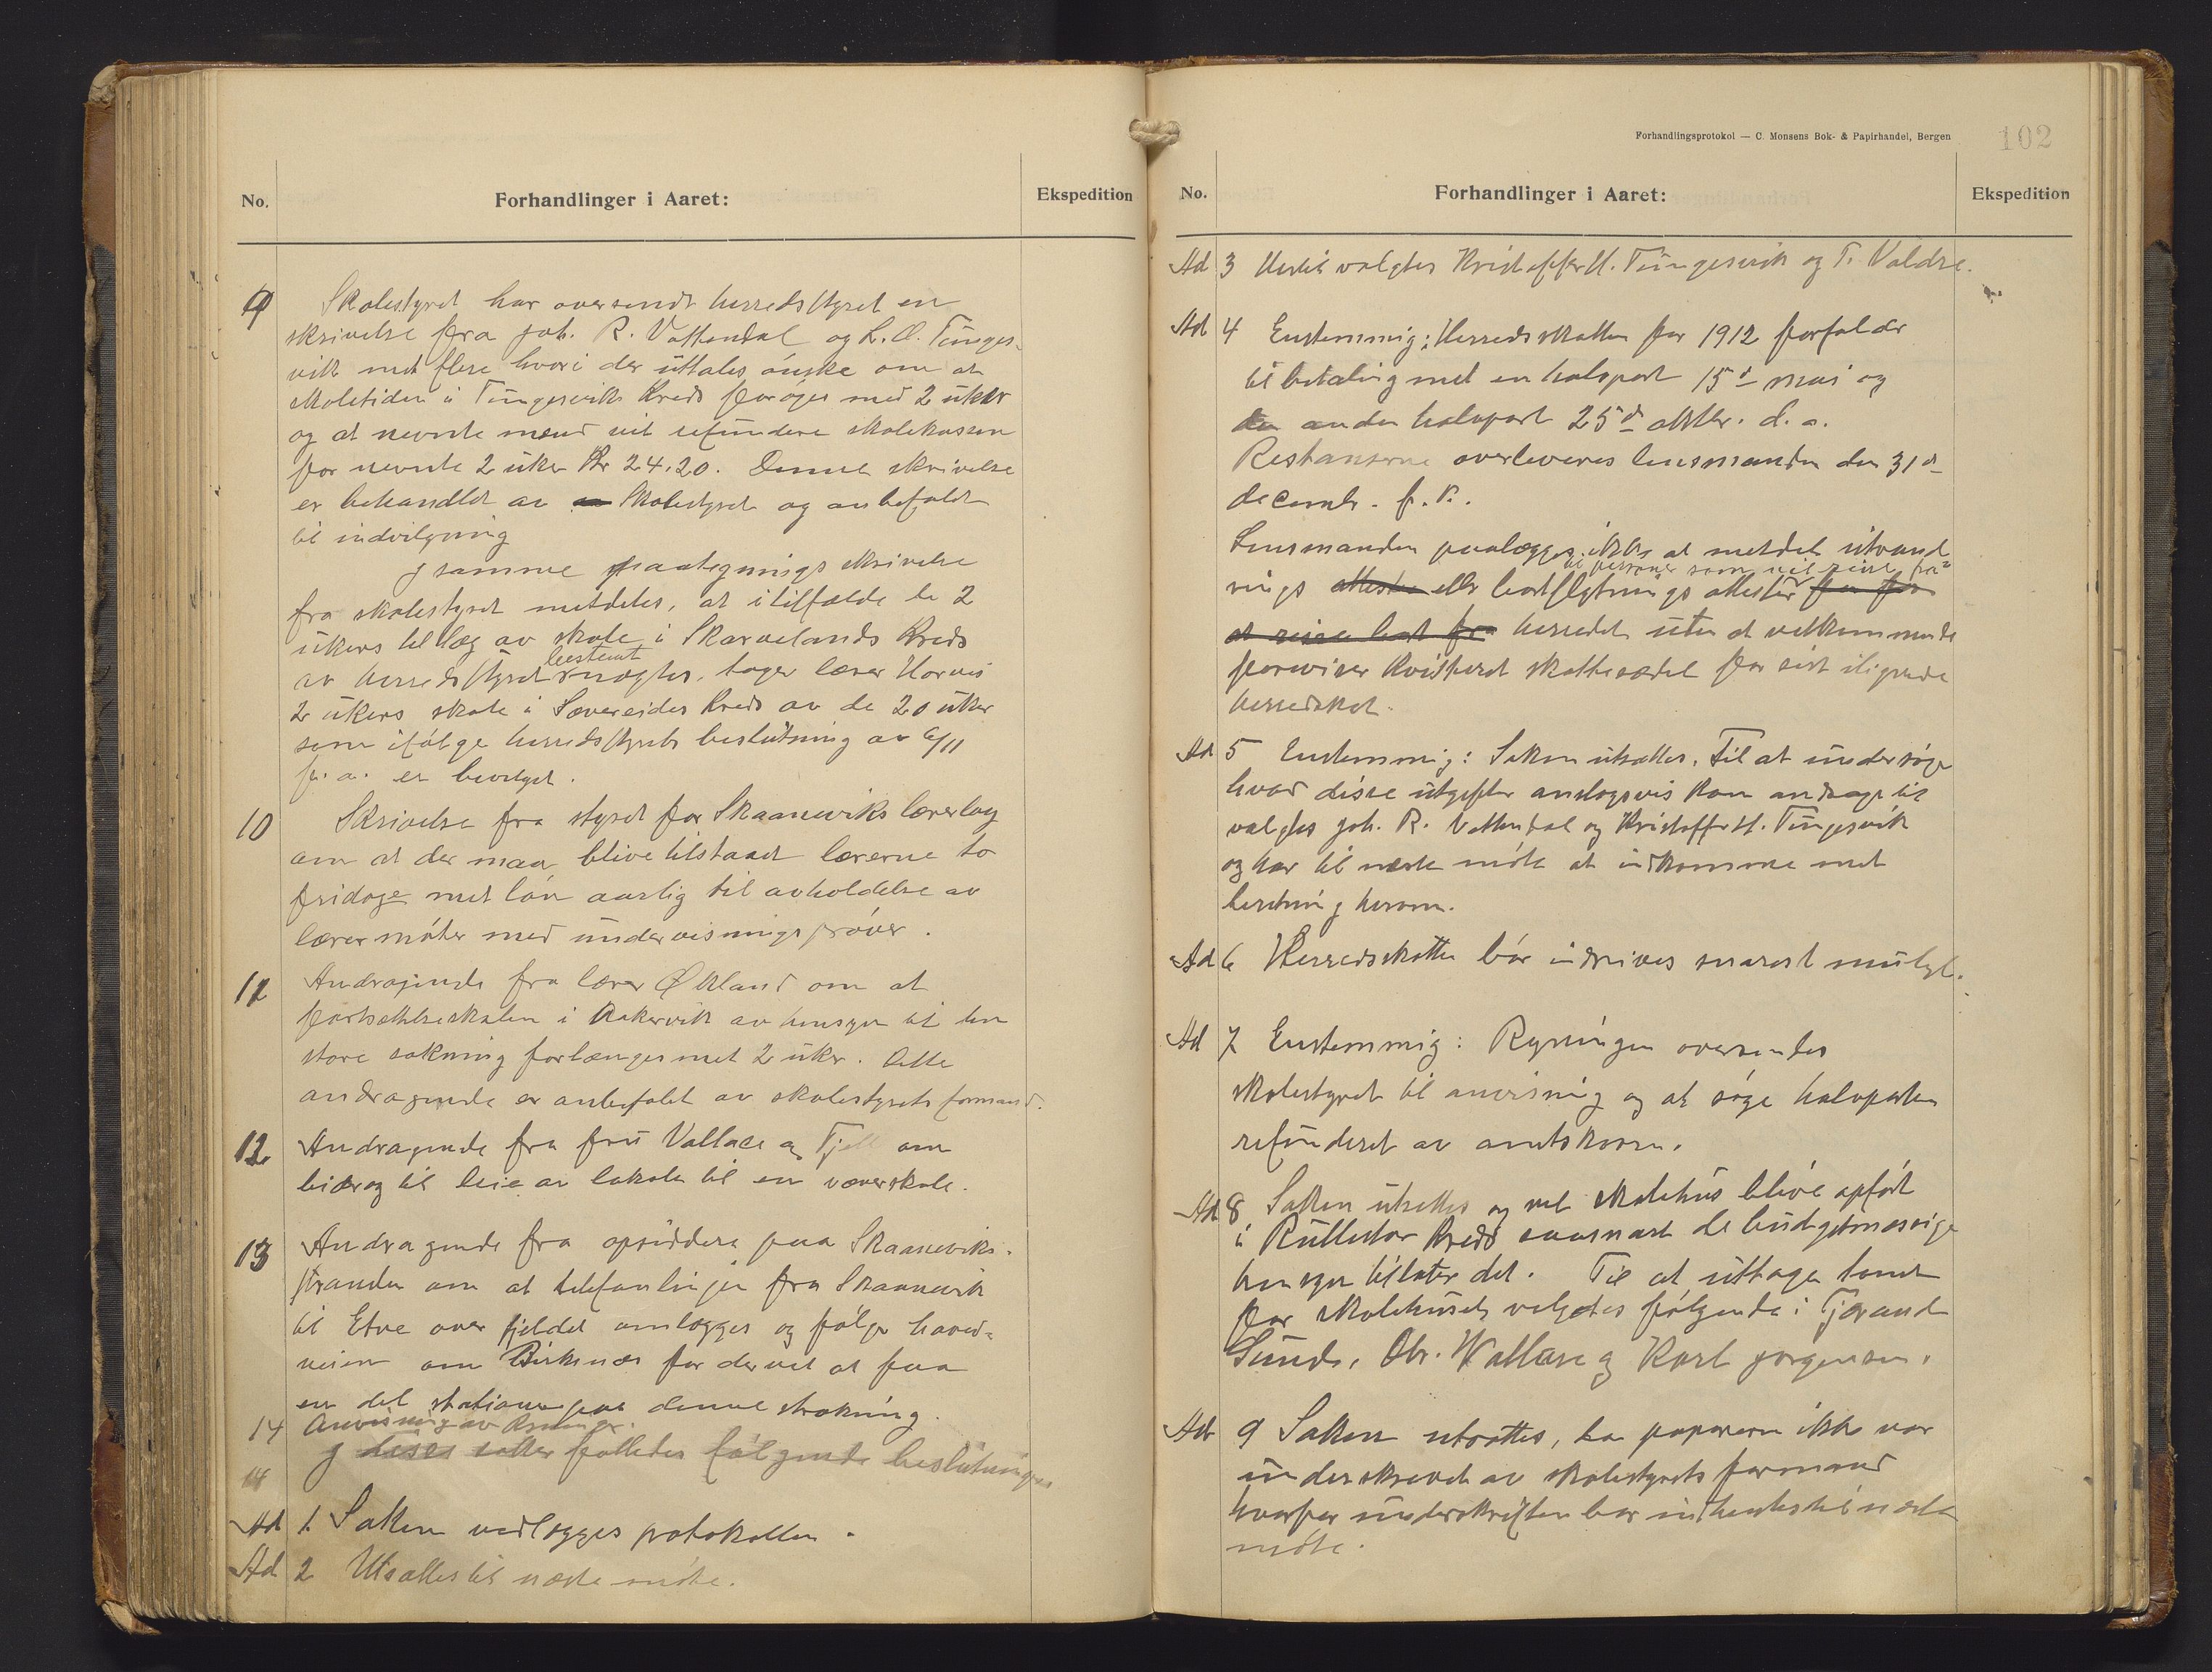 No.
Forhandlinger i Aaret:
Ekspedition
9 Skolestyret har oversendt herredsstyret en
skrivelse fra Joh. R. Vattendal og L. O. Tunges-
vik med flere hvori der uttales ønske om at
skoletiden i Tungesviks kreds forøges med 2 uker
og at nevnte mænd vil refundere skolekassen
for nevnte 2 uker Kr 24.20. Denne skrivelse
er behandlet av Skolestyret og anbefalt
til indvilgning
I samme paategnings skrivelse
fra skolestyret meddeles, at i tilfælde de 2
ukers tillæg av skole i Skarvelands kreds
av herredsstyret bestemt nægtes, tager lærer Horneis
2 ukers skole i Sævereides kreds av de 20 uker
som ifølge herredsstyrets beslutning av 6/11
f. a. er bevilget.
10 Skrivelse fra styret for Skaaneviks lærerlag
om at der maa blive tilstaaet lærerne to
fridage med løn aarlig til avholdelse av
lærermøter med undervisningsprøver.
11 Andragende fra lærer Økland om at
fortsættelsesskolen i Aakervik av hensyn til den
store søkning forlænges met 2 uker. Dette
andragende er anbefalet av skolestyrets formand.
12 Andragende fra fru Vallace og Tjell om
bidrag til leie av lokale til en væverskole.
13 Andragende fra opsiddere paa Skaaneviks-
stranden om at telefonlinjen fra Skaanevik
til Etne over fjeldet omlægges og følge hoved-
veien om Birknes for derved at faa
en del stationer paa denne strækning.
14 Anvisning av Regninger.
I disse saker fattedes følgende beslutninger
14
Ad 1. Saken vedlægges protokollen.
Ad 2 Utsættes til næste møte.
Forhandlingsprotokol — C. Monsens Bok- & Papirhandel, Bergen
102
No.
Forhandlinger i Aaret:
Ekspedition
Ad 3 Hertil valgtes Kristoffer H. Tungesvik og T. Valdre.
Ad 4 Enstemmig: Herredsskatten for 1912 forfalder
til betaling med en halvpart 15d mai og
den anden halvpart 25d oktbr. d. a.
Restanserne overleveres lensmanden den 31d
decembr. f. k.
Lensmanden paalægges ikke at meddele utvand
til personer som vil reise fra
rings attester eller bortflytnings attester for fra
at reise bort fra herredet uten at vedkommende
foreviser kvitteret skattesædel for sist ilignede
herredskat.
Ad 5 Enstemmig: Saken utsættes. Til at undersøge
hvad disse utgifter anslagsvis kan andrage til
valgtes Joh. R. Vattendal og Kristoffer H. Tungesvik
og har til næste møte at indkomme med
beretning herom.
Ad 6 Herredsskatten bør indrives snarest muligt.
Ad 7 Enstemmig: Regningen oversendes
skolestyret til anvisning og at søge halvparten
refunderet av amtskassen.
Ad 8 Saken utsettes og vil skolehus blive opført
i Rullestad kreds saasnart de budgetmæssige
hensyn tillater det. Til at uttage tomt
for skolehuset valgtes følgende: Tjerand
Sunde, Chr. Wallace og Karl Jørgensen.
Ad 9 Saken utsattes, da papirerne ikke var
underskrevet av skolestyrets formand
hvorfor underskriften bør indhentes til næste
møte.